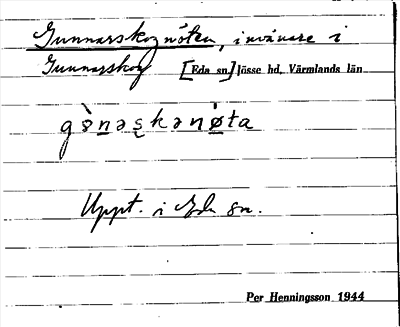 Gunnarskognöten, invånare i
Gunnarskog [Eda sn] Jösse hd, Värmlands län
Uppt. i Eda sn.
Per Henningsson 1944